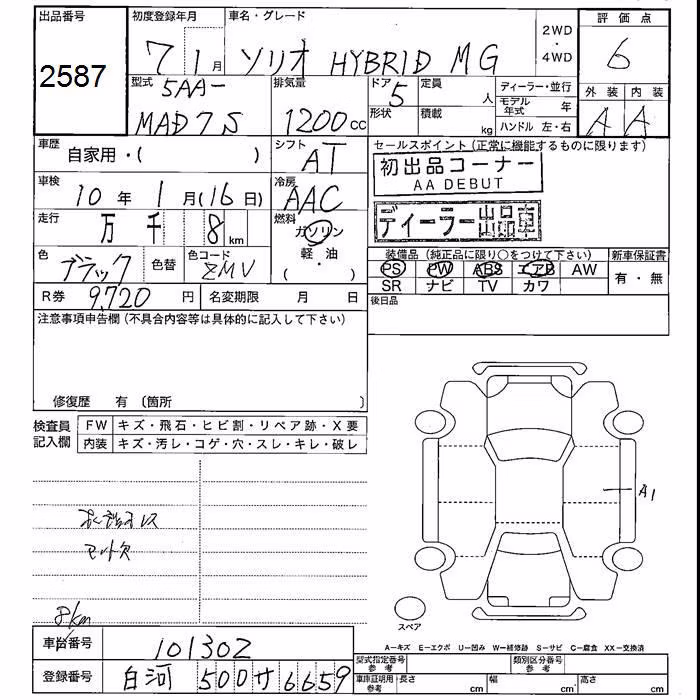 出品番号
2587
初度登録年月
7 1月
車名・グレード
ソリオ HYBRID MG
2WD
・
4WD
評価点
6
型式
5AA-
MAD7S
排気量
1200cc
ドア 5
形状
定員 人
積載 kg
ディーラー・並行
モデル年式 年
ハンドル 左・右
外装 内装
A A
車歴
自家用・( )
シフト
AT
セールスポイント(正常に機能するものに限ります)
初出品コーナー
AA DEBUT
車検
10年 1月(16日)
冷房
AAC
走行
万 千 8 km
燃料
ガソリン
軽・油
( ・ )
ディーラー出品車
色
ブラック
色替
色コード
ZMV
装備品(純正品に限り○をつけて下さい)
新車保証書
PS PW ABS エアB AW
有・無
SR ナビ TV カワ
R券 9,720円
名変期限 月 日
後日品
注意事項申告欄(不具合内容等は具体的に記入して下さい)
修復歴 有(箇所 )
検査員
記入欄
FW キズ・飛石・ヒビ割・リペア跡・X要
内装 キズ・汚レ・コゲ・穴・スレ・キレ・破レ
A1
マット欠
8km
スペア
A−キズ E−エクボ U−凹み W−補修跡 S−サビ C−腐食 XX−交換済
車台番号
101302
登録番号
白河 500 サ 6659
型式指定番号
参考
類別区分番号
参考
車庫証明用
参考
長さ cm
幅 cm
高さ cm